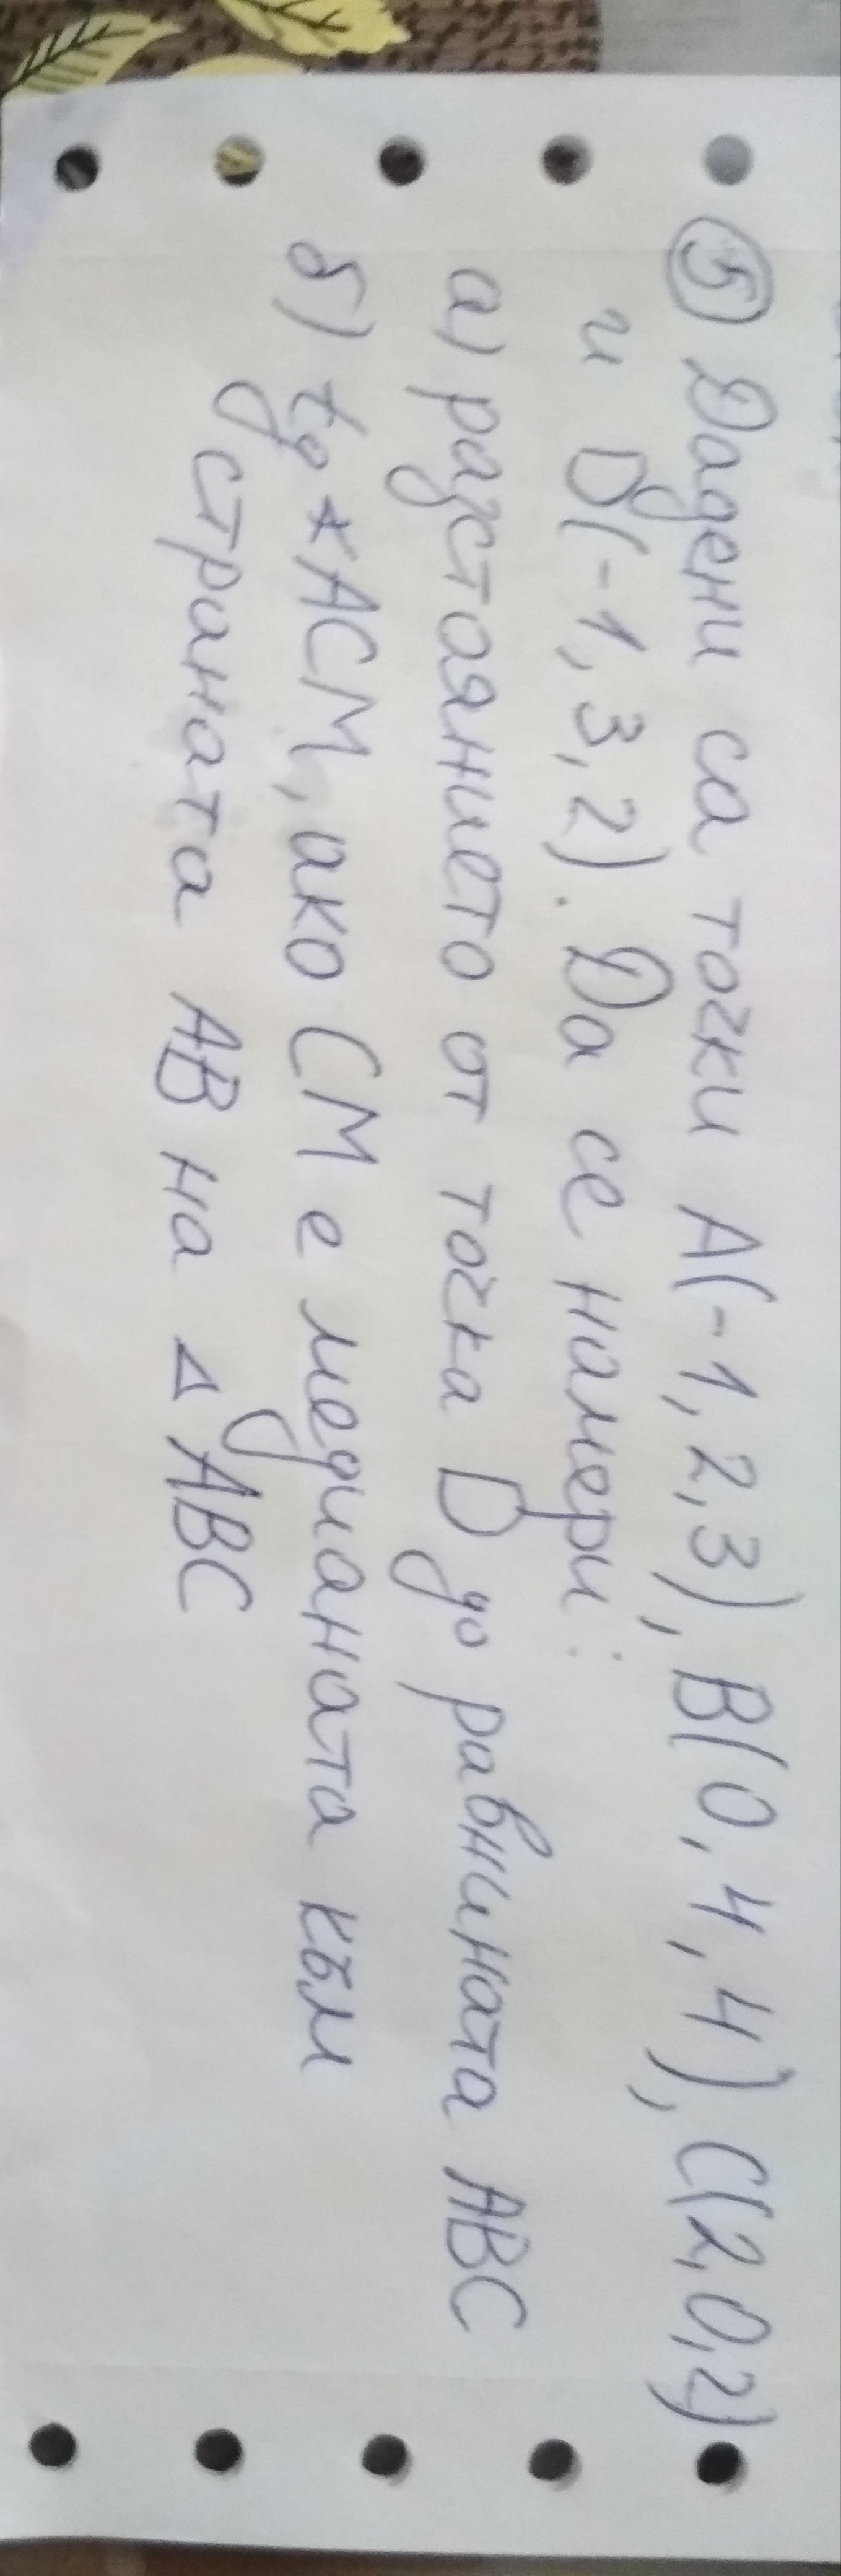 5) Дадени са точки A(-1,2,3), B(0,4,4), C(2,0,2)
и D(-1,3,2). Да се намери:
а) разстоянието от точка D до равнината ABC
б) tg∢ACM, ако CM е медианата към
страната AB на △ABC